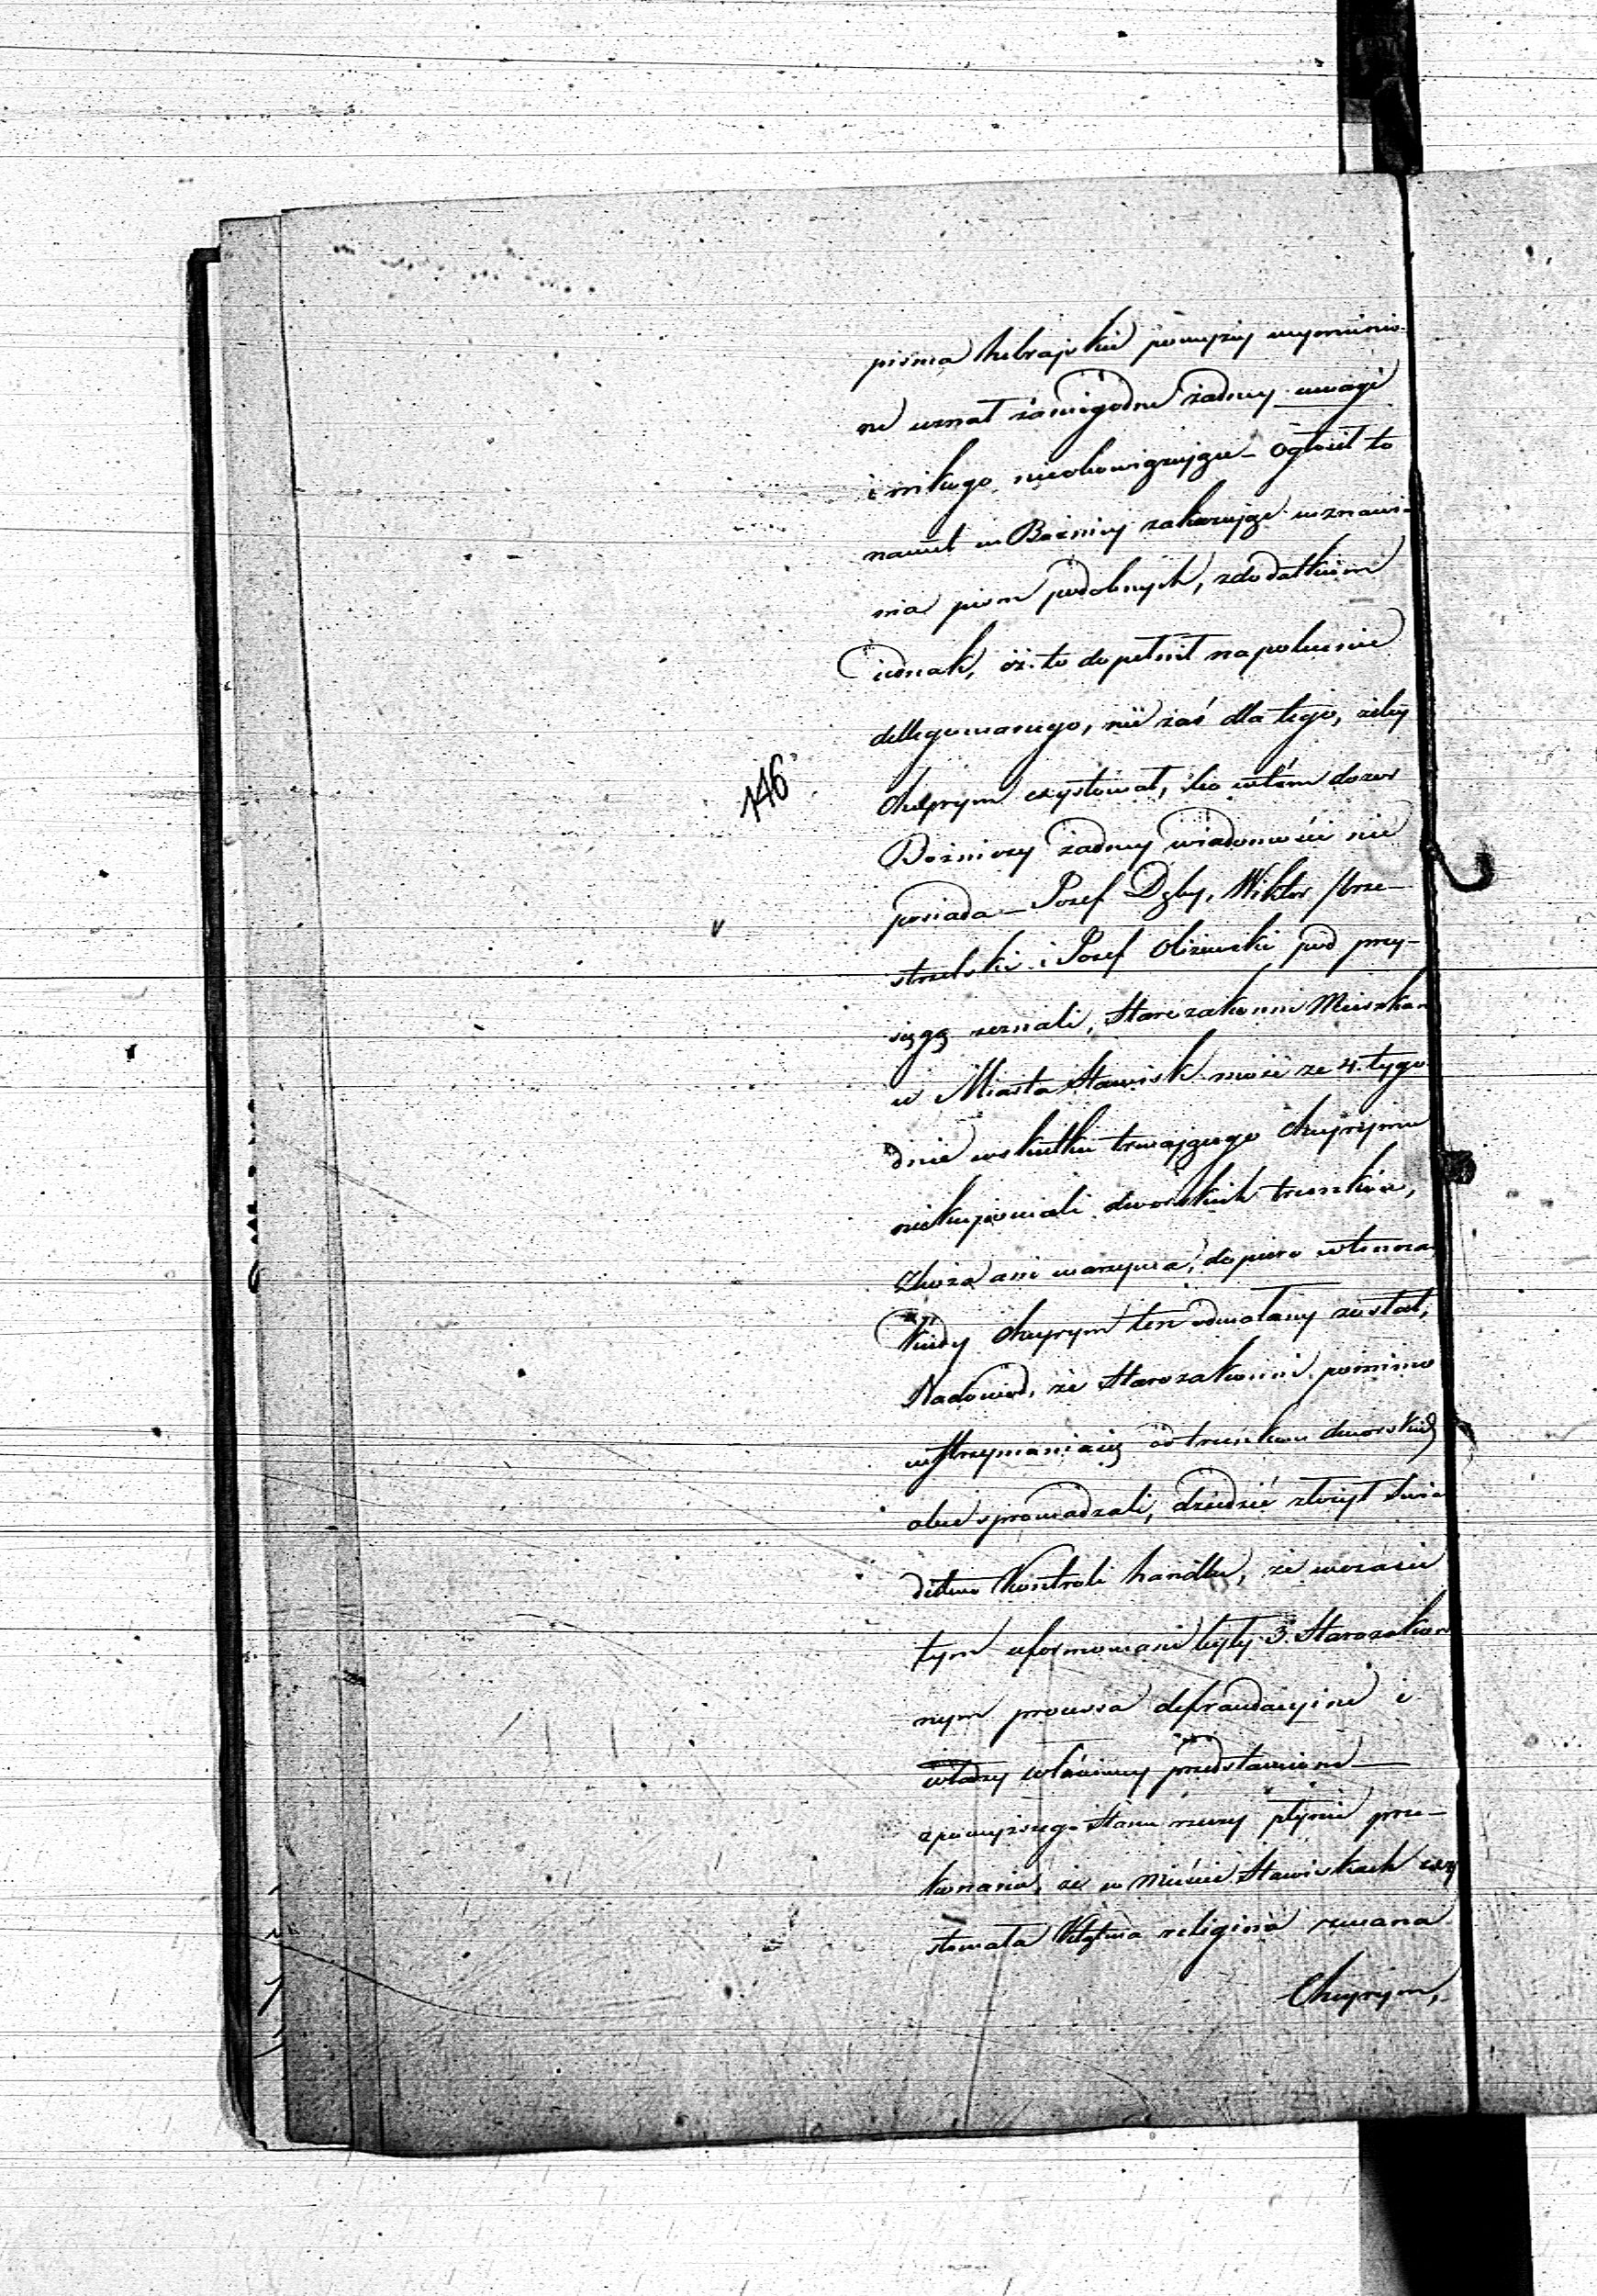 pisma hebrajskie powyżej wymienio-
ne uznał za niegodne żadney uwagi
i nikogo nieobowiązujące – Ogłosił to
nawet w Bożnicy zakazując wznawi-
nia pism podobnych, z dodatkiem
iednak, iż to dopełnił na polecenie
dellegowanego, nie zaś dla tego, żeby
Cheyrym exystował, bo wtém dozor
Bożniczy żadney wiadomości nie
posiada – Jozef Dęby, Wiktor
strzelski i Jozef Olszewski pod przy-
sięgą zeznali, Starozakonni Mieszkań
w Miasta Stawisk może ze 4. tygo
dnie wskutku trwającego Cheyrymu
niekupowali dworskich trunków,
Zboża ani warzywa, dopiero wtenczas
kiedy Cheyrym ten odwołany został,
Nadowód, że Starozakonni pomimo
wstrzymania się od trunków dworskich
obce sprowadzali, dziedzic złożył świa
dectwo Kontroli handlu, że wczasie
tym uformowane były 3. Starozakon
nym processa defraudacyine i
władzy właściwey przedstawione –
z powyższego stanu rzeczy płynie prze-
konanie, że w mieście Stawiskach exy
stowała Klątwa religina zwana
Cheyrym,
146